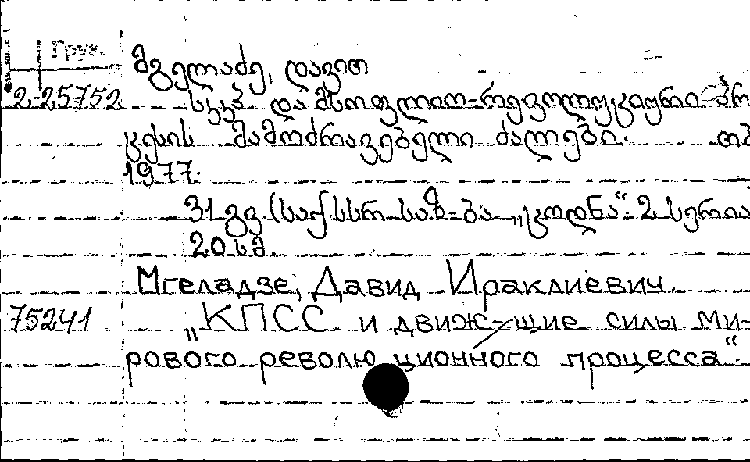 Груз.
მგელაძე, დავით
2-25752 სკკპ და მსოფლიო რევოლუციური პრო
ცესის მამოძრავებელი ძალები. თბ
1977.
31 გვ. (საქ. სსრ საზ-ბა „ცოდნა“. 2 სერია
20 სმ.
Мгеладзе, Давид Ираклиевич.
75241 „КПСС и движущие силы ми-
рового революционного процесса“.